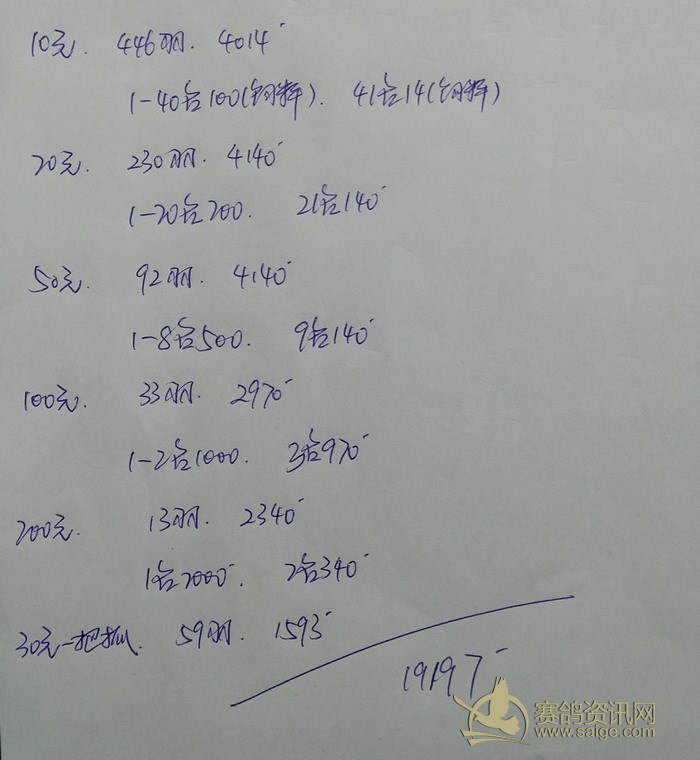 10元. 446羽. 4014-
1-40名100(铜牌). 41名14(铜牌)
20元. 230羽. 4140-
1-20名200. 21名140-
50元. 92羽. 4140-
1-8名500. 9名140-
100元. 33羽. 2970-
1-2名1000. 3名970-
200元. 13羽. 2340-
1名2000-. 2名340-
30元一把抓. 59羽. 1593-
19197-
赛鸽资讯网
www.saige.com